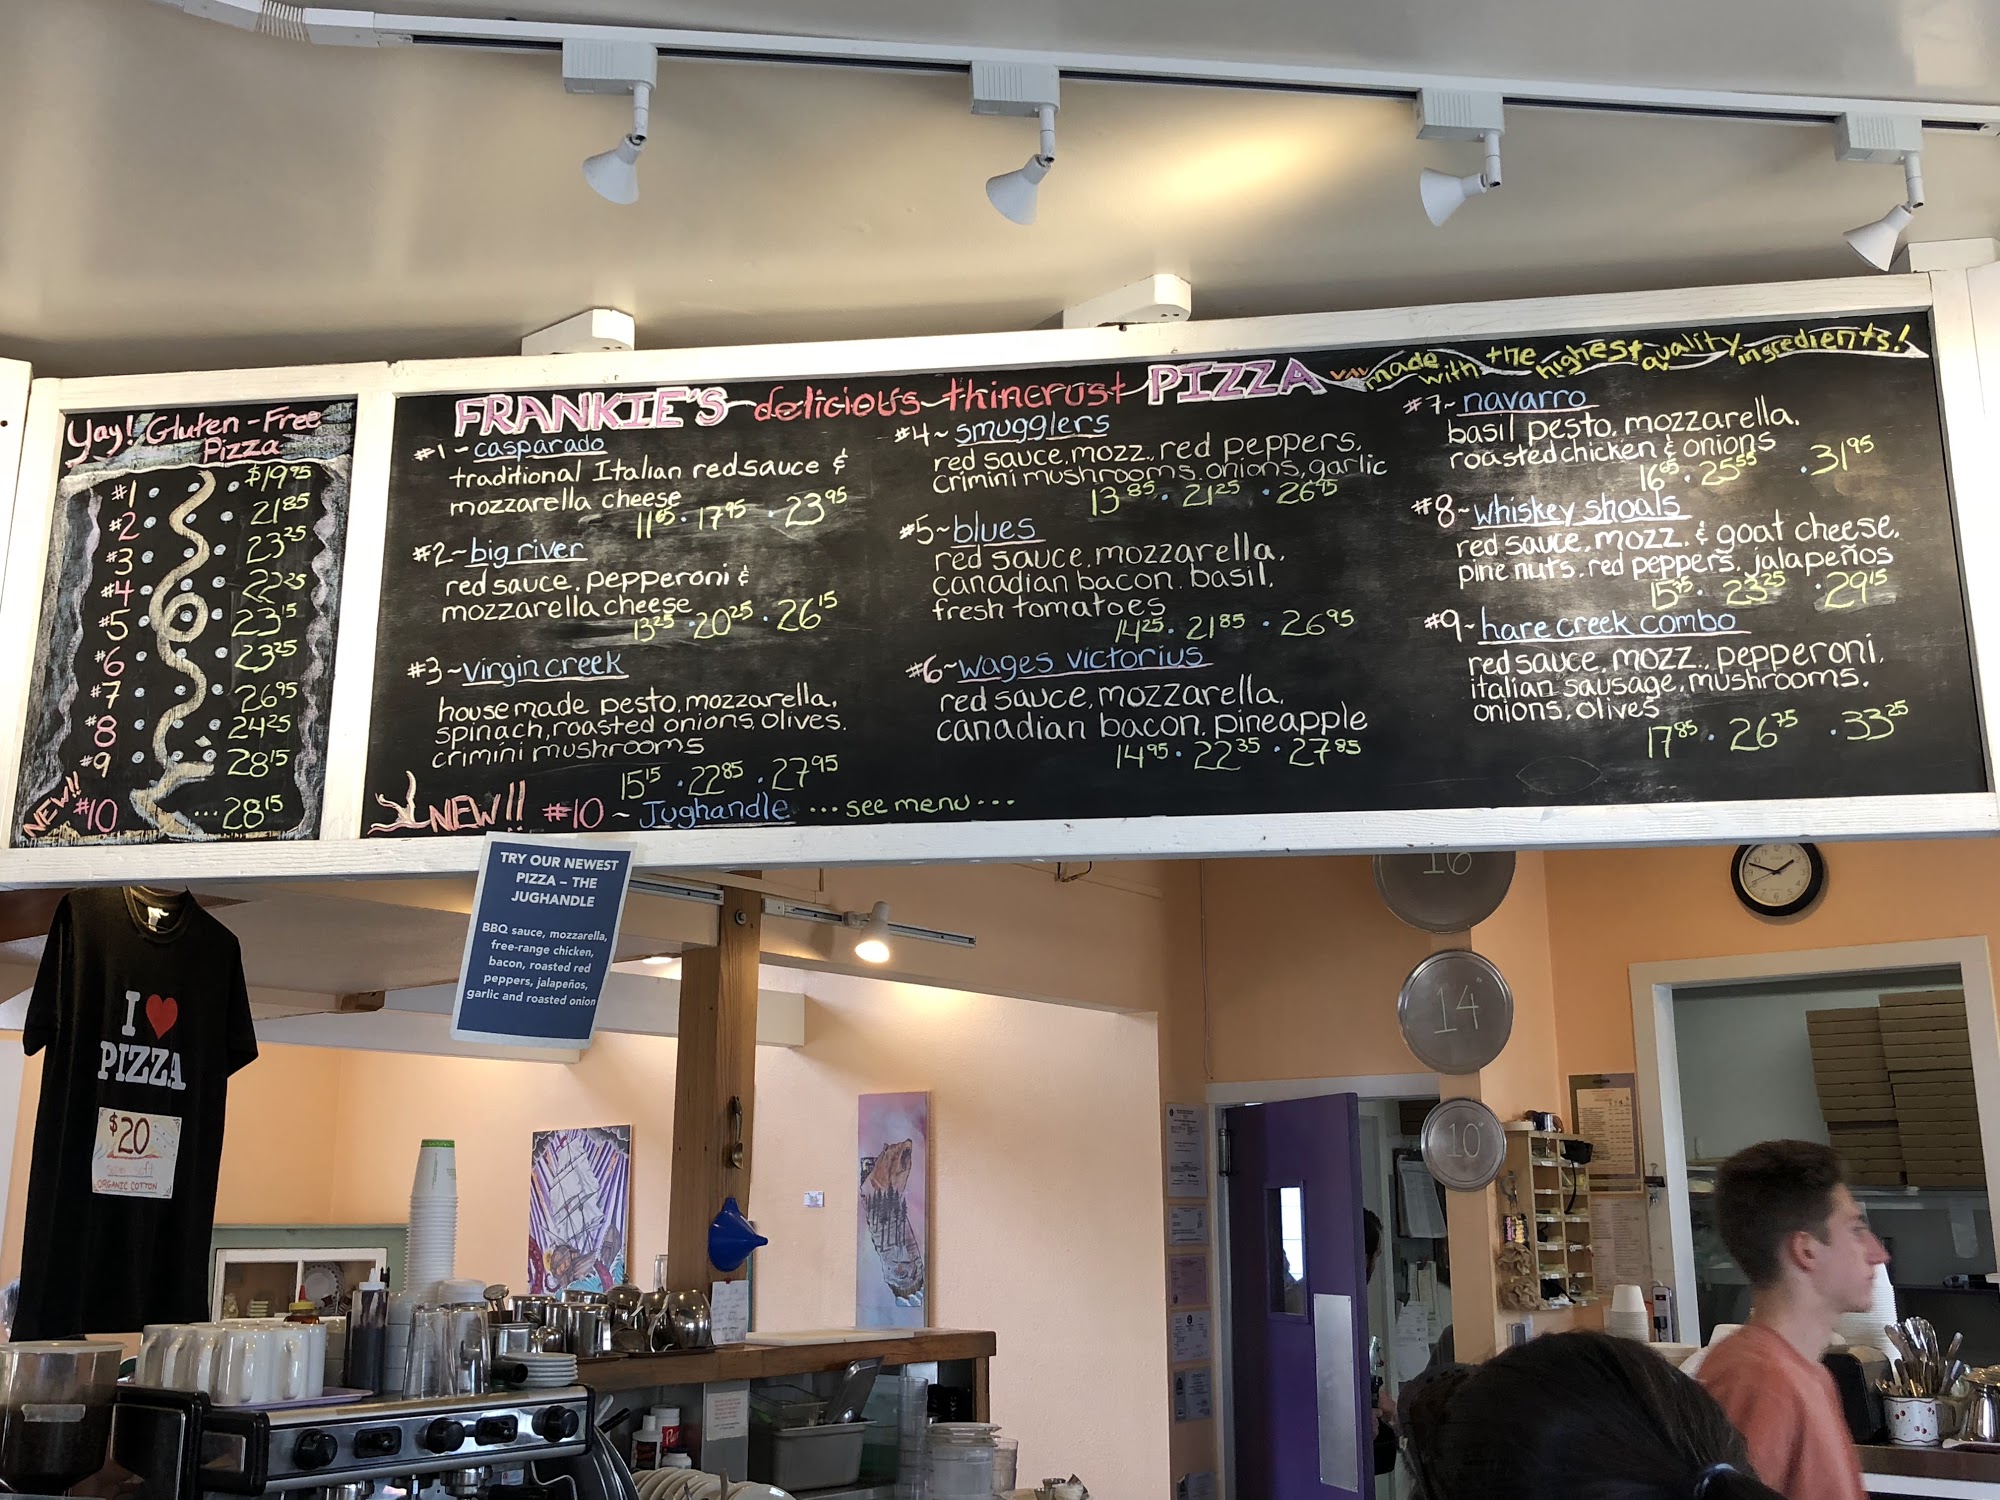 Yay! Gluten-Free
Pizza
#1 $19.95
#2 21.85
#3 23.25
#4 22.25
#5 23.15
#6 23.25
#7 26.95
#8 24.25
#9 28.15
NEW!! #10 ...28.15
FRANKIE'S~delicious~thincrust~PIZZA ~ made with the highest quality ingredients!
#1~casparado
traditional Italian red sauce &
mozzarella cheese
11.65 · 17.95 · 23.95
#2~big river
red sauce, pepperoni &
mozzarella cheese
13.25 · 20.25 · 26.15
#3~Virgin creek
housemade pesto, mozzarella,
spinach, roasted onions, olives,
crimini mushrooms
15.15 · 22.85 · 27.95
NEW!! #10 ~ Jughandle ...see menu...
#4~smugglers
red sauce, mozz., red peppers,
crimini mushrooms, onions, garlic
13.85 · 21.25 · 26.45
#5~blues
red sauce, mozzarella,
canadian bacon, basil,
fresh tomatoes
14.25 · 21.85 · 26.95
#6~wages victorius
red sauce, mozzarella,
canadian bacon, pineapple
14.95 · 22.35 · 27.85
#7~navarro
basil pesto, mozzarella,
roasted chicken & onions
16.65 · 25.55 · 31.95
#8~whiskey shoals
red sauce, mozz. & goat cheese,
pine nuts, red peppers, jalapeños
15.35 · 23.25 · 29.15
#9~hare creek combo
red sauce, mozz., pepperoni,
italian sausage, mushrooms,
onions, olives
17.85 · 26.75 · 33.25
TRY OUR NEWEST
PIZZA – THE
JUGHANDLE
BBQ sauce, mozzarella,
free-range chicken,
bacon, roasted red
peppers, jalapeños,
garlic and roasted onion
I ♥
PIZZA
$20
ORGANIC COTTON
16"
14"
10"